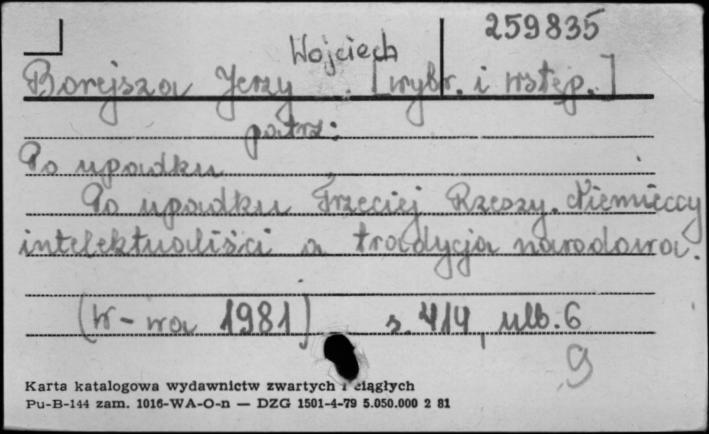 259835
Wojciech
Borejsza Jerzy [wybr. i wstęp.]
patrz:
Po upadku
Po upadku Trzeciej Rzeszy. Niemieccy
intelektualiści a tradycja narodowa.
(W-wa 1981) s. 414, ulb. 6
9
Karta katalogowa wydawnictw zwartych i ciągłych
Pu-B-144 zam. 1016-WA-O-n — DZG 1501-4-79 5.050.000 2 81